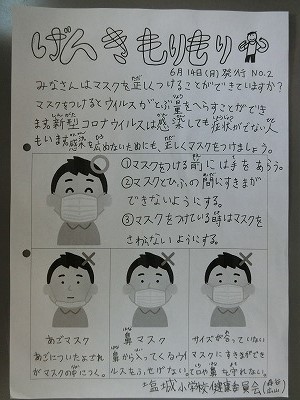 げんきもりもり
6月14日(月)発行 NO.2
みなさんはマスクを正しくつけることができていますか?
マスクをつけるとウイルスがとぶ量をへらすことができ
ます。新型コロナウイルスは感染しても症状がでない人
もいます。感染を広めないためにも、正しくマスクをつけましょう。
①マスクをつける前には手をあらう。
②マスクとひふの間にすきまが
できないようにする。
③マスクをつけている時はマスクを
さわらないようにする。
あごマスク
あごについたよごれ
がマスクの中につく。
鼻マスク
鼻から入ってくるウイ
ルスをふせげない。
サイズが合っていない
マスクにすきまができ
て口や鼻を守れない。
塩城小学校健康委員会